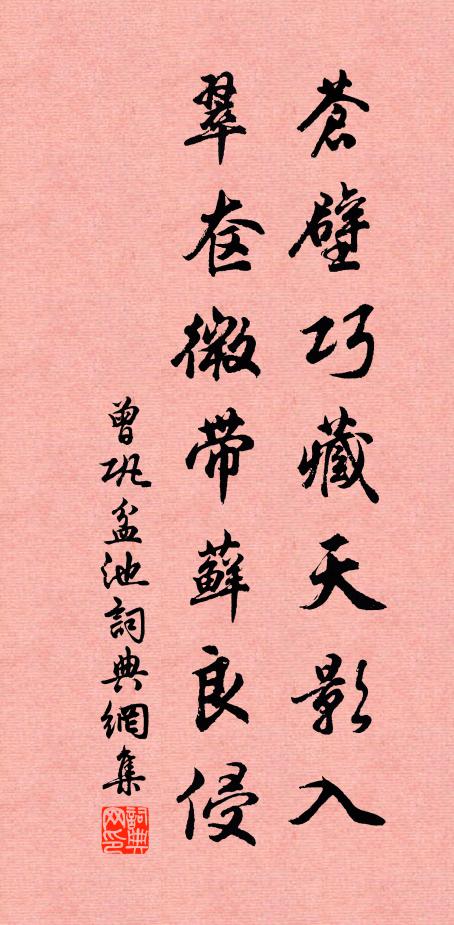 蒼壁巧藏天影入
翠奁微带蘚良侵
曾巩盆池詞典網集
詞典网印